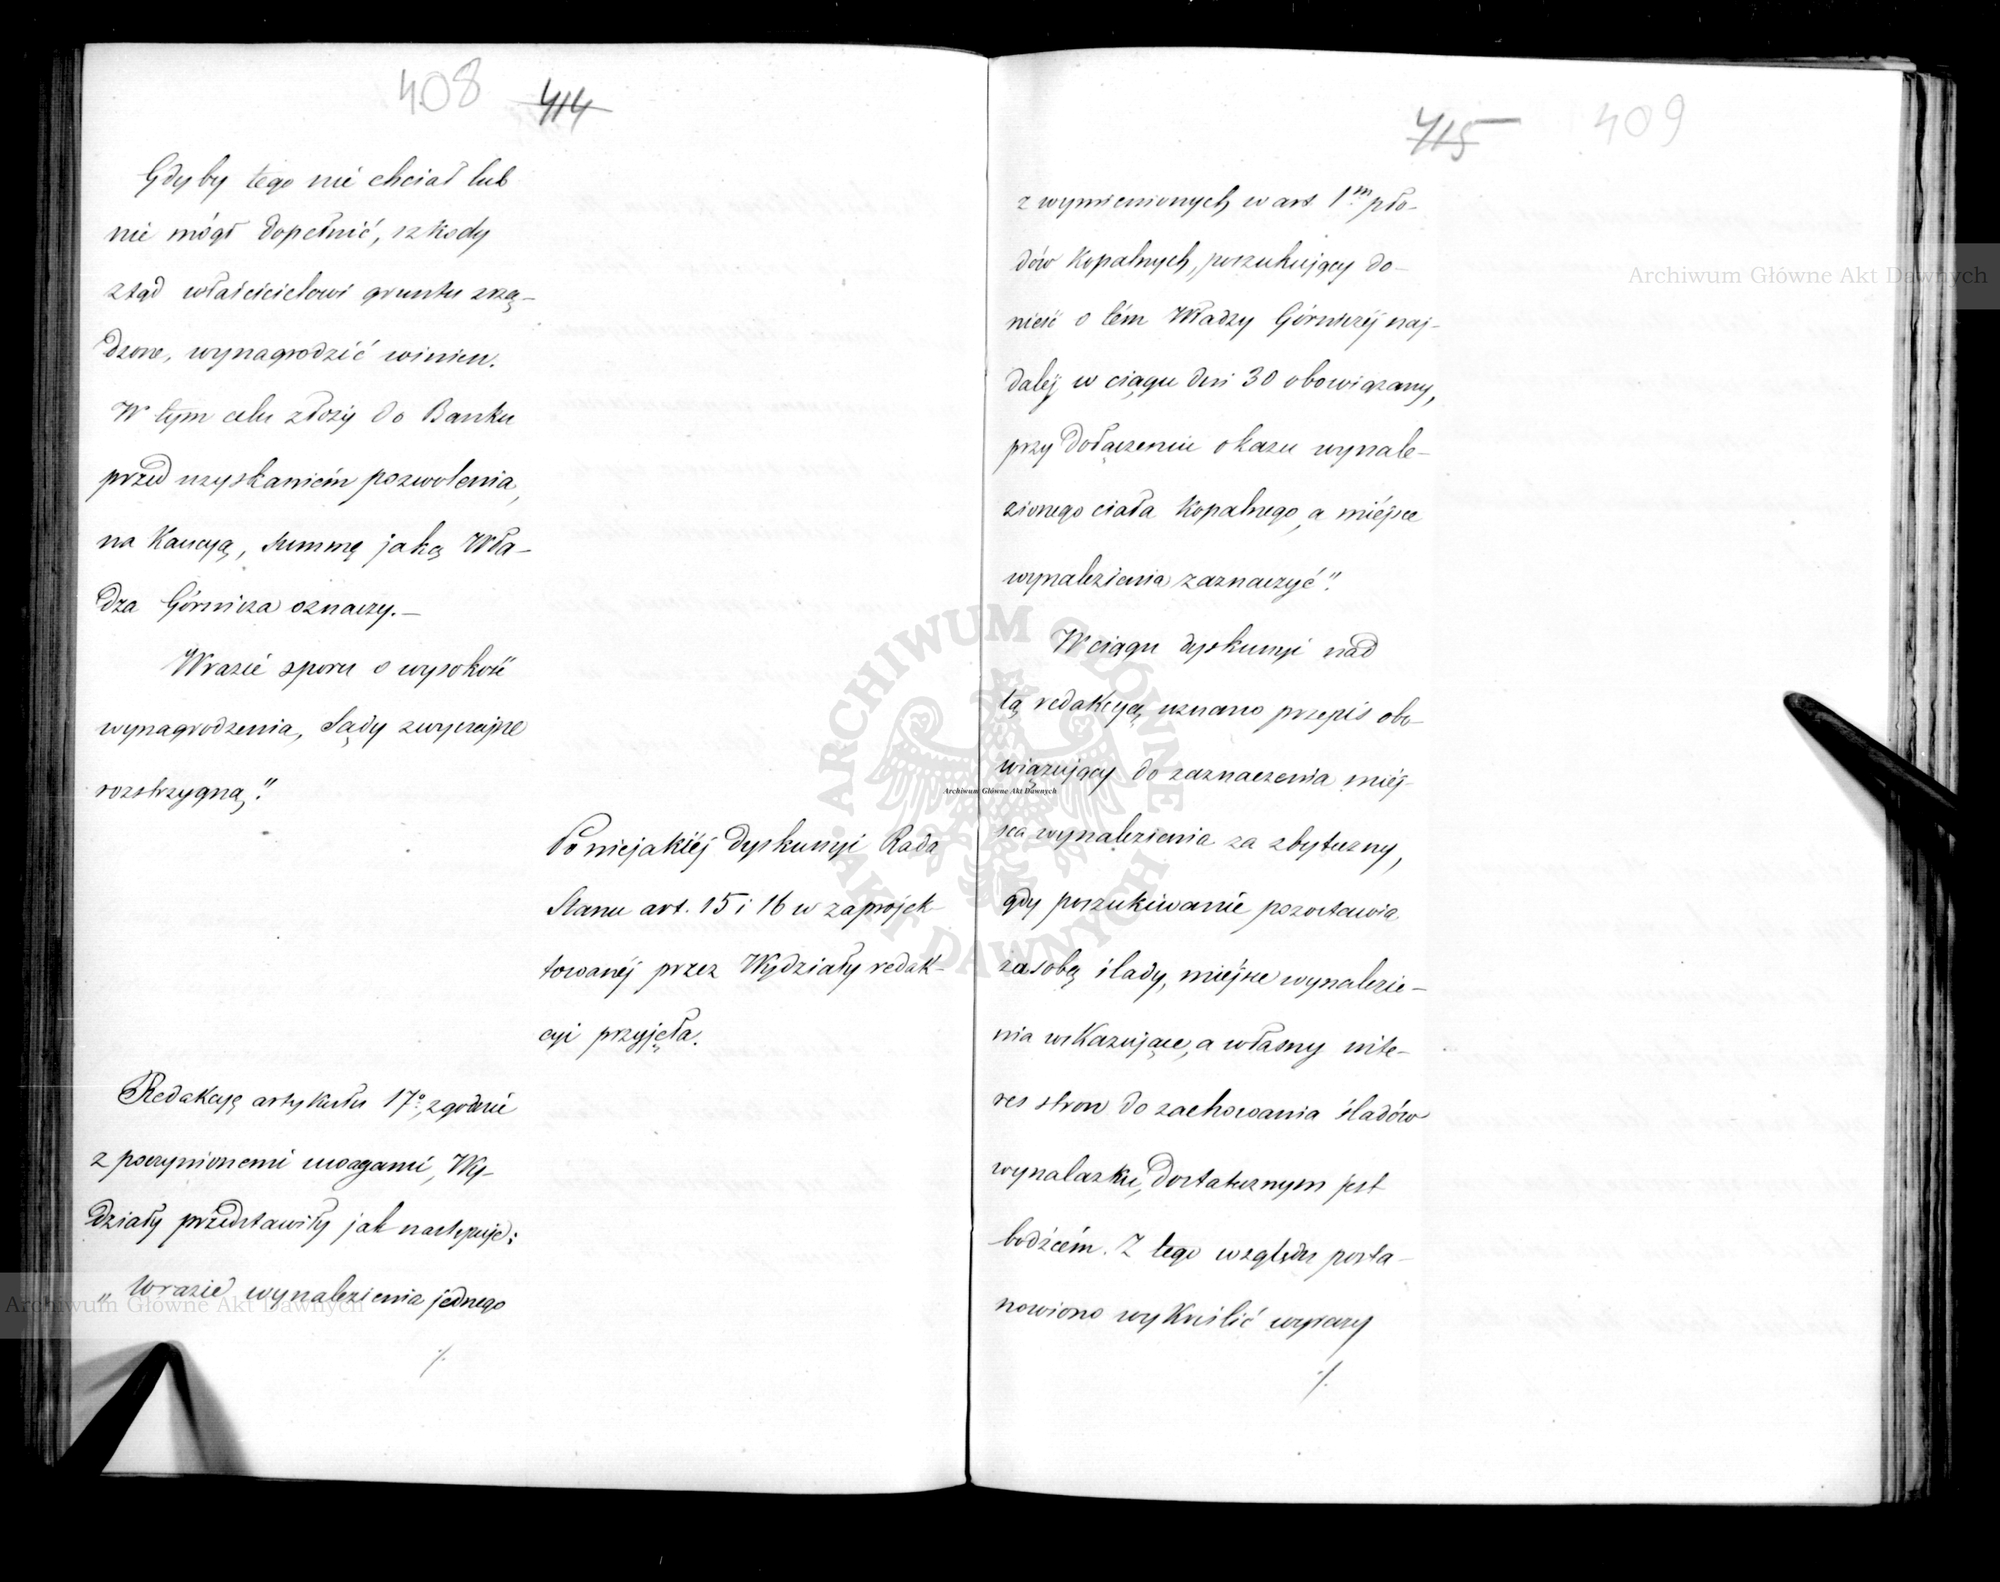 408 414
Gdyby tego nie chciał lub
nie mógł dopełnić, szkody
ztąd właścicielowi gruntu zrzą-
dzone, wynagrodzić winien.
W tym celu złoży do Banku
przed uzyskaniem pozwolenia,
na Kaucyą, summę jaką Wła-
dza Górnicza oznaczy.—
W razie sporu o wysokość
wynagrodzenia, Sądy zwyczajne
rozstrzygną."
Po niejakiéj dyskussyi Rada
Stanu art. 15 i 16 w zaprojek-
towanéj przez Wydziały redak-
cyi przyjęła.
Redakcyę artykułu 17º, zgodnie
z poczynionemi uwagami, Wy-
działy przedstawiły jak następuje:
„W razie wynalezienia jednego
./.
415 409
z wymienionych w art 1m pło-
dów Kopalnych, poszukujący do-
nieść o tém Władzy Górniczéj naj-
daléj w ciągu dni 30 obowiązany,
przy dołączeniu okazu wynale-
zionego ciała Kopalnego, a miéjsce
wynalezienia zaznaczyć".
W ciągu dyskussyi nad
tą redakcyą, uznano przepis obo-
wiązujący do zaznaczenia miéj-
sca wynalezienia za zbyteczny,
gdy poszukiwanie pozostawia
za sobą ślady, miéjsce wynalezie-
nia wskazujące, a własny inte-
res stron do zachowania śladów
wynalazku, dostatecznym jest
bodźcem. Z tego względu posta-
nowiono wykreślić wyrazy
./.
Archiwum Główne Akt Dawnych
ARCHIWUM GŁÓWNE AKT DAWNYCH
Archiwum Główne Akt Dawnych
Archiwum Główne Akt Dawnych